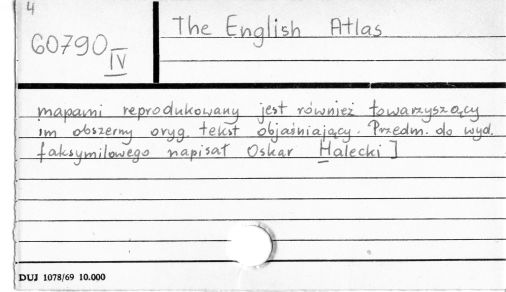 4
60790
IV
The English Atlas
mapami reprodukowany jest również towarzyszący
im obszerny oryg. tekst objaśniający. Przedm. do wyd.
faksymilowego napisał Oskar Halecki]
DUJ 1078/69 10.000